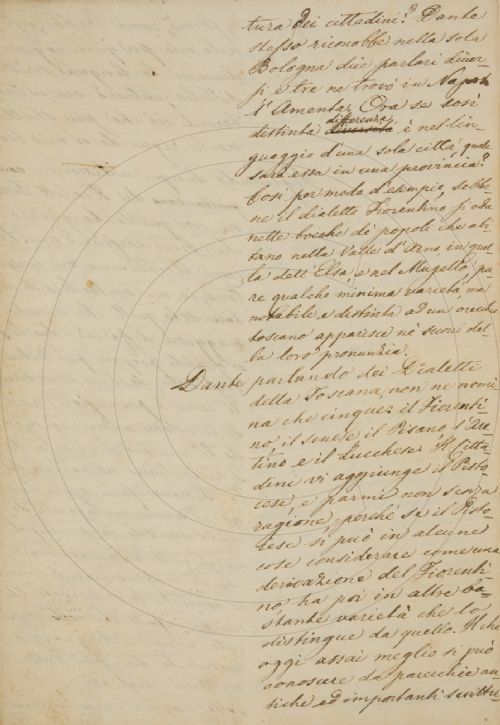 tura dei cittadini? Dante
stesso riconobbe nella sola
Bologna due parlari diver-
si e tre ne trovò in Napoli
l'Amenta. Ora se così
distinta differenza è nel lin-
guaggio d'una sola città, quale
sarà essa in una provincia?
Così per modo d'esempio, sebbe-
ne il dialetto Fiorentino si oda
nelle bocche de' popoli che abi-
tano nella Valle d'Arno, in quel-
la dell'Elsa, e nel Mugello, pu-
re qualche minima varietà, ma
notabile e distinta ad un orecchio
toscano apparisce ne' suoni del-
la loro pronunzia.
Dante parlando dei Dialetti
della Toscana, non ne nomi-
na che cinque: il Fiorenti-
no, il Senese il Pisano l'Are-
tino e il Lucchese. Il Citta-
dini vi aggiunge il Pisto-
iese, e parmi non senza
ragione, perché se il Pisto-
iese si può in alcune
cose considerare come una
derivazione del Fiorenti-
no, ha poi in altre ba-
stante varietà che lo
distingue da quello. Il che
oggi assai meglio si può
conoscere da parecchie an-
tiche ed importanti scrittu-